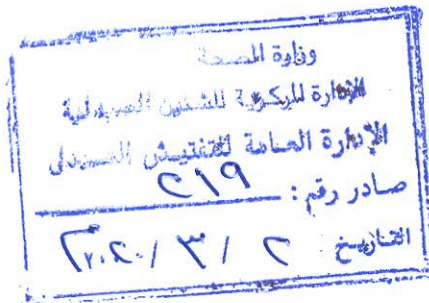 وزارة الصحة
الإدارة المركزية للشئون الصيدلية
الإدارة العامة للتفتيش الصيدلى
صادر رقم : ٢١٩
التاريخ ٢ / ٣ / ٢٠٢٠